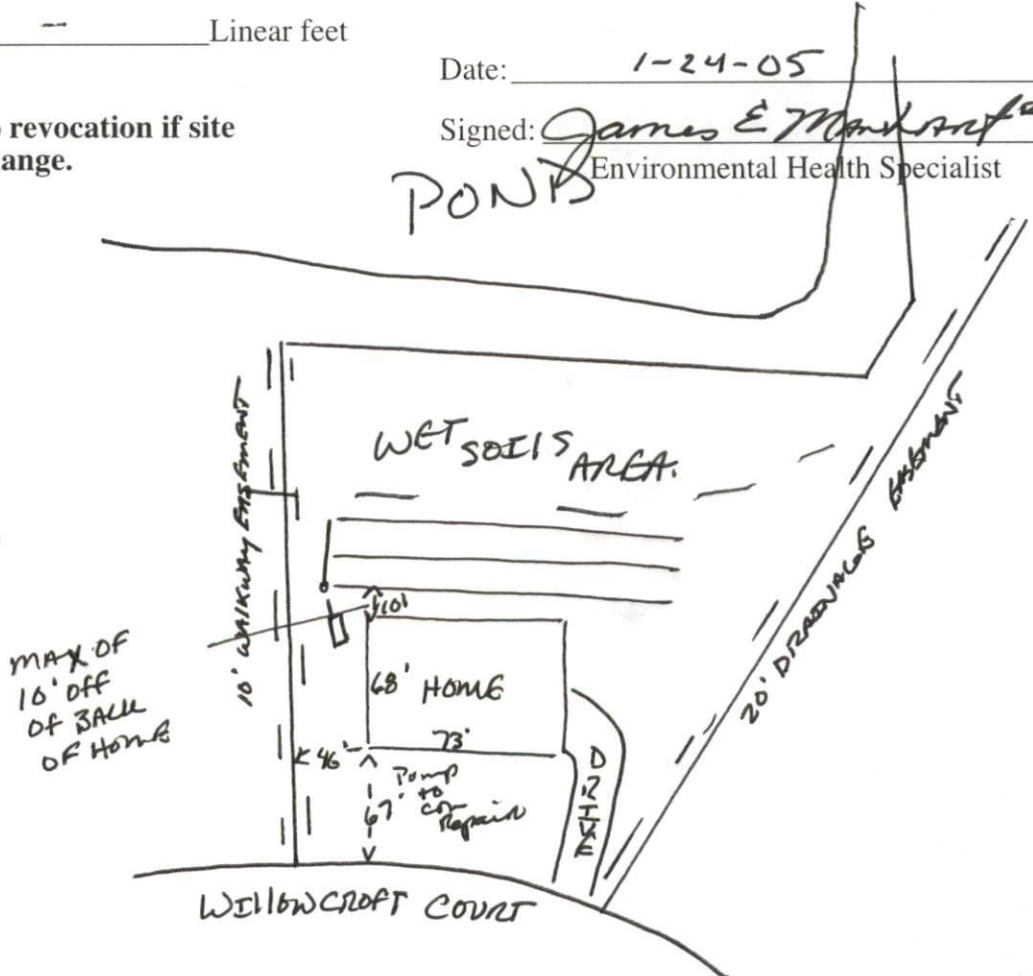 — Linear feet
Date: 1-24-05
revocation if site
ange.
Signed: James E
Environmental Health Specialist
POND
WET SOILS AREA.
10' WALKWAY EASEMENT
20' DRAINAGE EASEMENT
10'
MAX OF
10' OFF
OF BACK
OF HOME
68' HOME
73'
46'
67'
Pump
to
Repair
DRIVE
WILLOWCROFT COURT